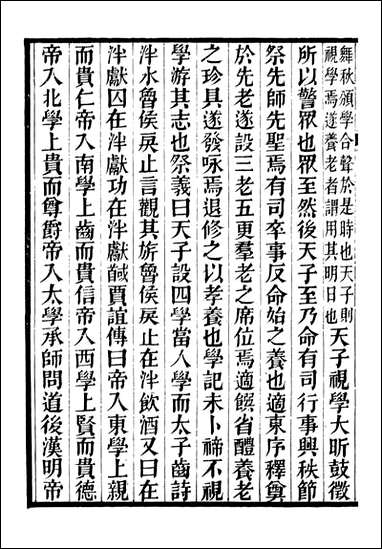 舞秋頒學合聲於是時也天子則
視學焉遂養老者謂用其明日也
天子視學大昕鼓徵
所以警眾也眾至然後天子至乃命有司行事興秩節
祭先師先聖焉有司卒事反命始之養也適東序釋奠
於先老遂設三老五更羣老之席位焉適饌省醴養老
之珍具遂發咏焉退修之以孝養也學記未卜禘不視
學游其志也祭義曰天子設四學當入學而太子齒詩
泮水魯侯戾止言觀其旂魯侯戾止在泮飲酒又曰在
泮獻囚在泮獻功在泮獻馘賈誼傳曰帝入東學上親
而貴仁帝入南學上齒而貴信帝入西學上賢而貴德
帝入北學上貴而尊爵帝入太學承師問道後漢明帝